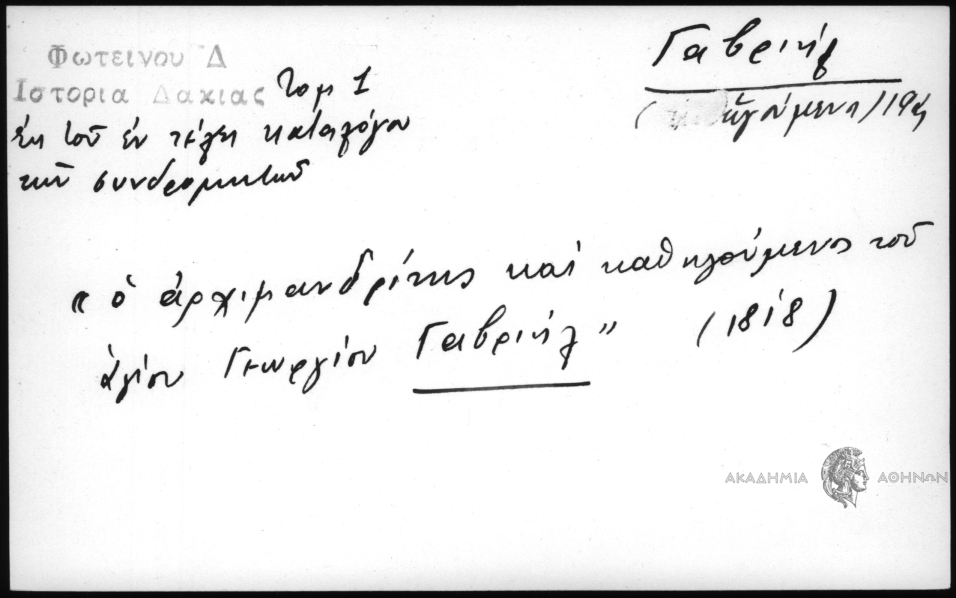 Φωτεινου Δ
Ιστορια Δακιας τομ 1
ἐκ τοῦ ἐν τέλει καταλόγου
τῶν συνδρομητῶν
Γαβριήλ
( ἡγούμενος)
" ὁ ἀρχιμανδρίτης καὶ καθηγούμενος τοῦ
ἁγίου Γεωργίου Γαβριήλ " (1818)
ΑΚΑΔΗΜΙΑ ΑΘΗΝΩΝ